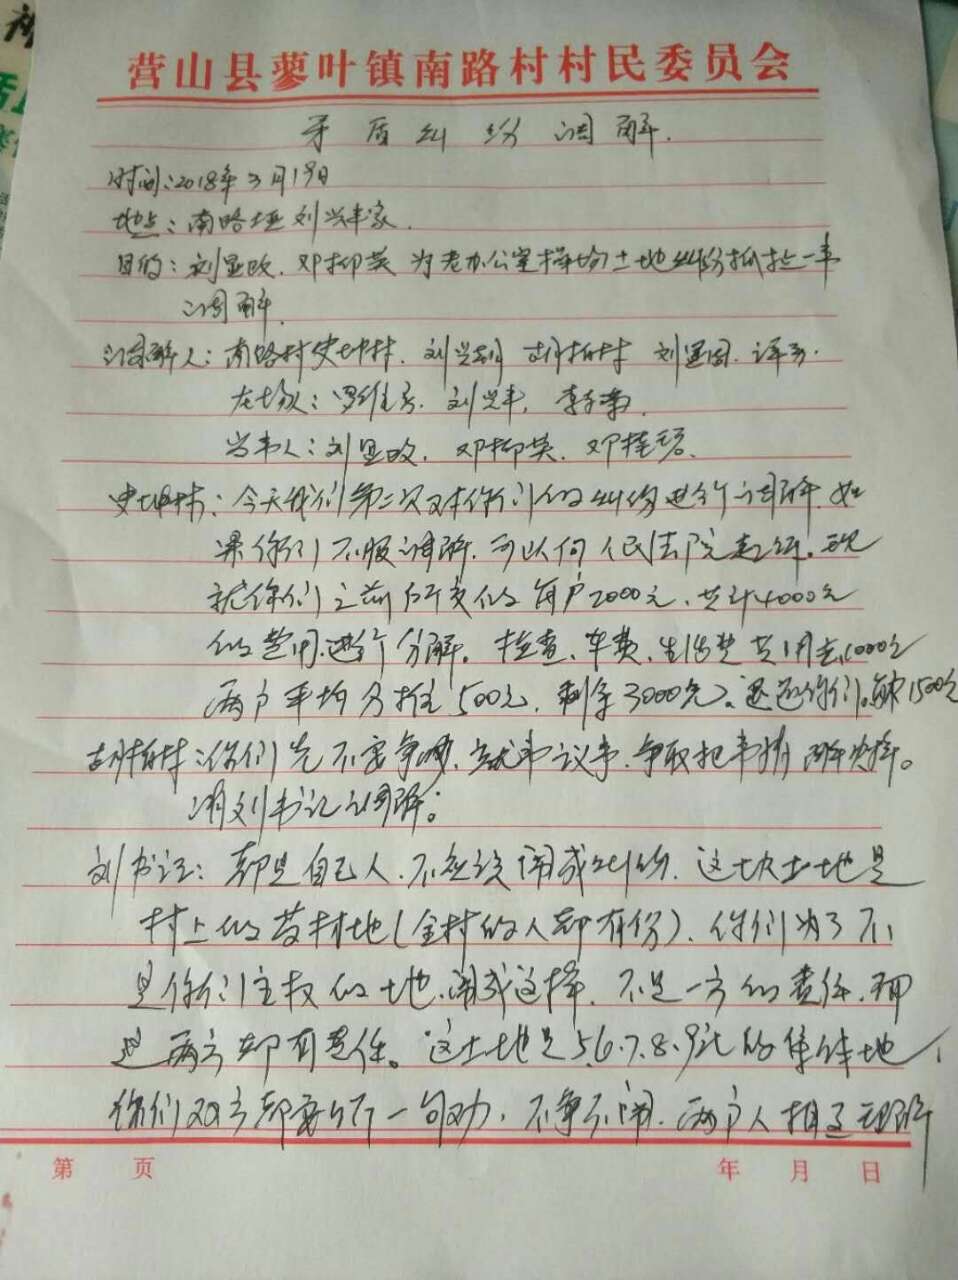 营山县蓼叶镇南路村村民委员会
矛盾纠纷调解.
时间:2018年3月19日
地点:南路垭刘兴丰家.
目的:刘显政.邓柳英为老办公室操场土地纠纷抓扯一事
调解.
调解人:南路村史坤林.刘兴 胡柏林 刘
在场人:罗维 .刘兴丰,李
当事人:刘显政.邓柳英.邓桂
史坤林:今天我们第二次对你们的纠纷进行调解.如
果你们不服调解.可以向人民法院起诉.现
就你们之前所交的每户2000元.共计4000元
的费用.进行分解.检查、车费、生活费共用去1000元
两户平均分摊500元.剩余3000元.退还你们.每户1500元
胡柏林:你们先不要争吵.就事议事.争取把事情解决掉.
请刘书记调解:
刘书记:都是自己人.不应该闹成纠纷.这块土地是
村上的药材地(全村的人都有份).你们为了不
是你们主权的土地.闹成这样.不是一方的责任.
过两方都有责任.这土地是5.6.7.8.9社的集体地,
你们双方都要 一句劝,不争不闹.两户人相互理解
第 页 年 月 日